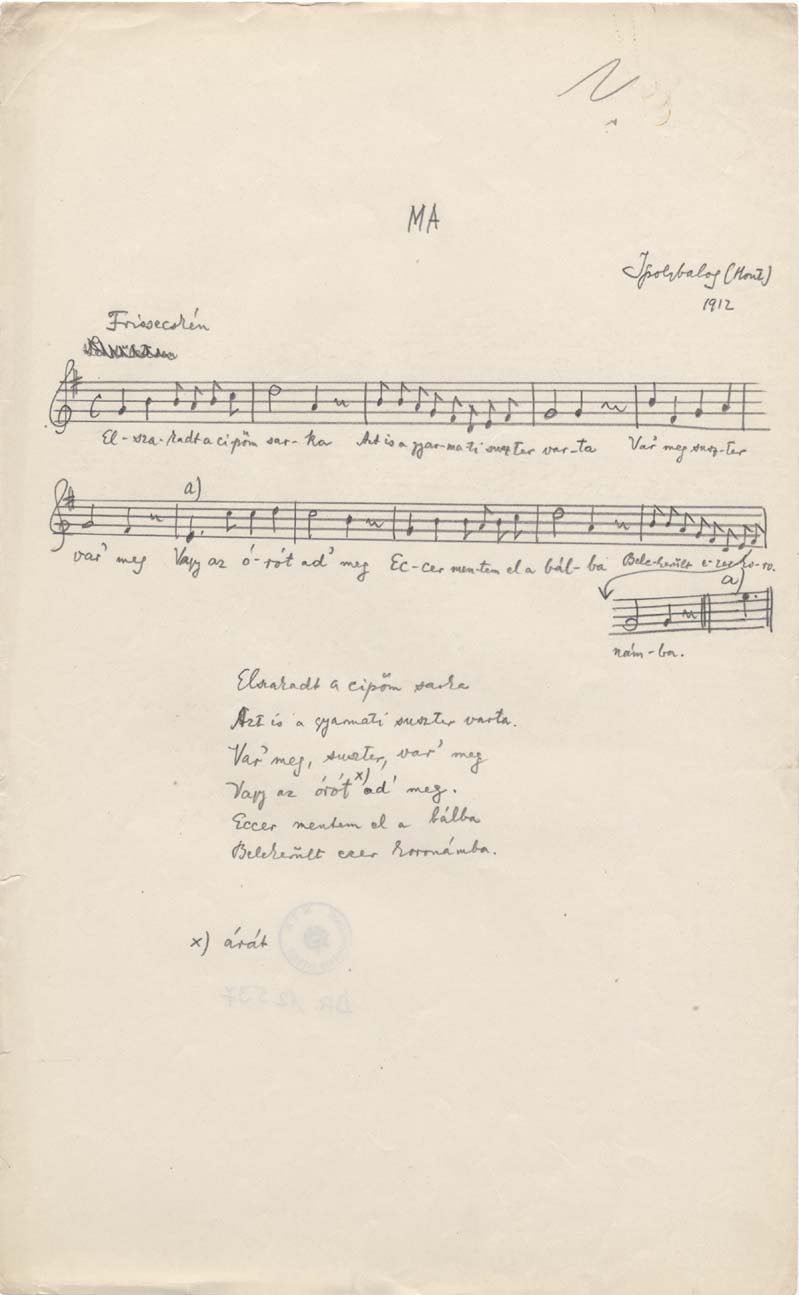 MA
Ipolybalog (Hont)
1912
Frissecskén
El-sza-kadt a cipőm sar-ka Azt is a gyar-ma-ti suszter var-ta Var' meg susz-ter
a)
var' meg Vagy az ó-rót ad' meg Ec-cer men-tem el a bál-ba Bele-került e-zer ko-ro-
a)
nám-ba.
Elszakadt a cipőm sarka
Azt is a gyarmati suszter varta.
Var' meg, suszter, var' meg
Vagy az órót x) ad' meg.
Eccer mentem el a bálba
Belekerült ezer koronámba.
x) árát